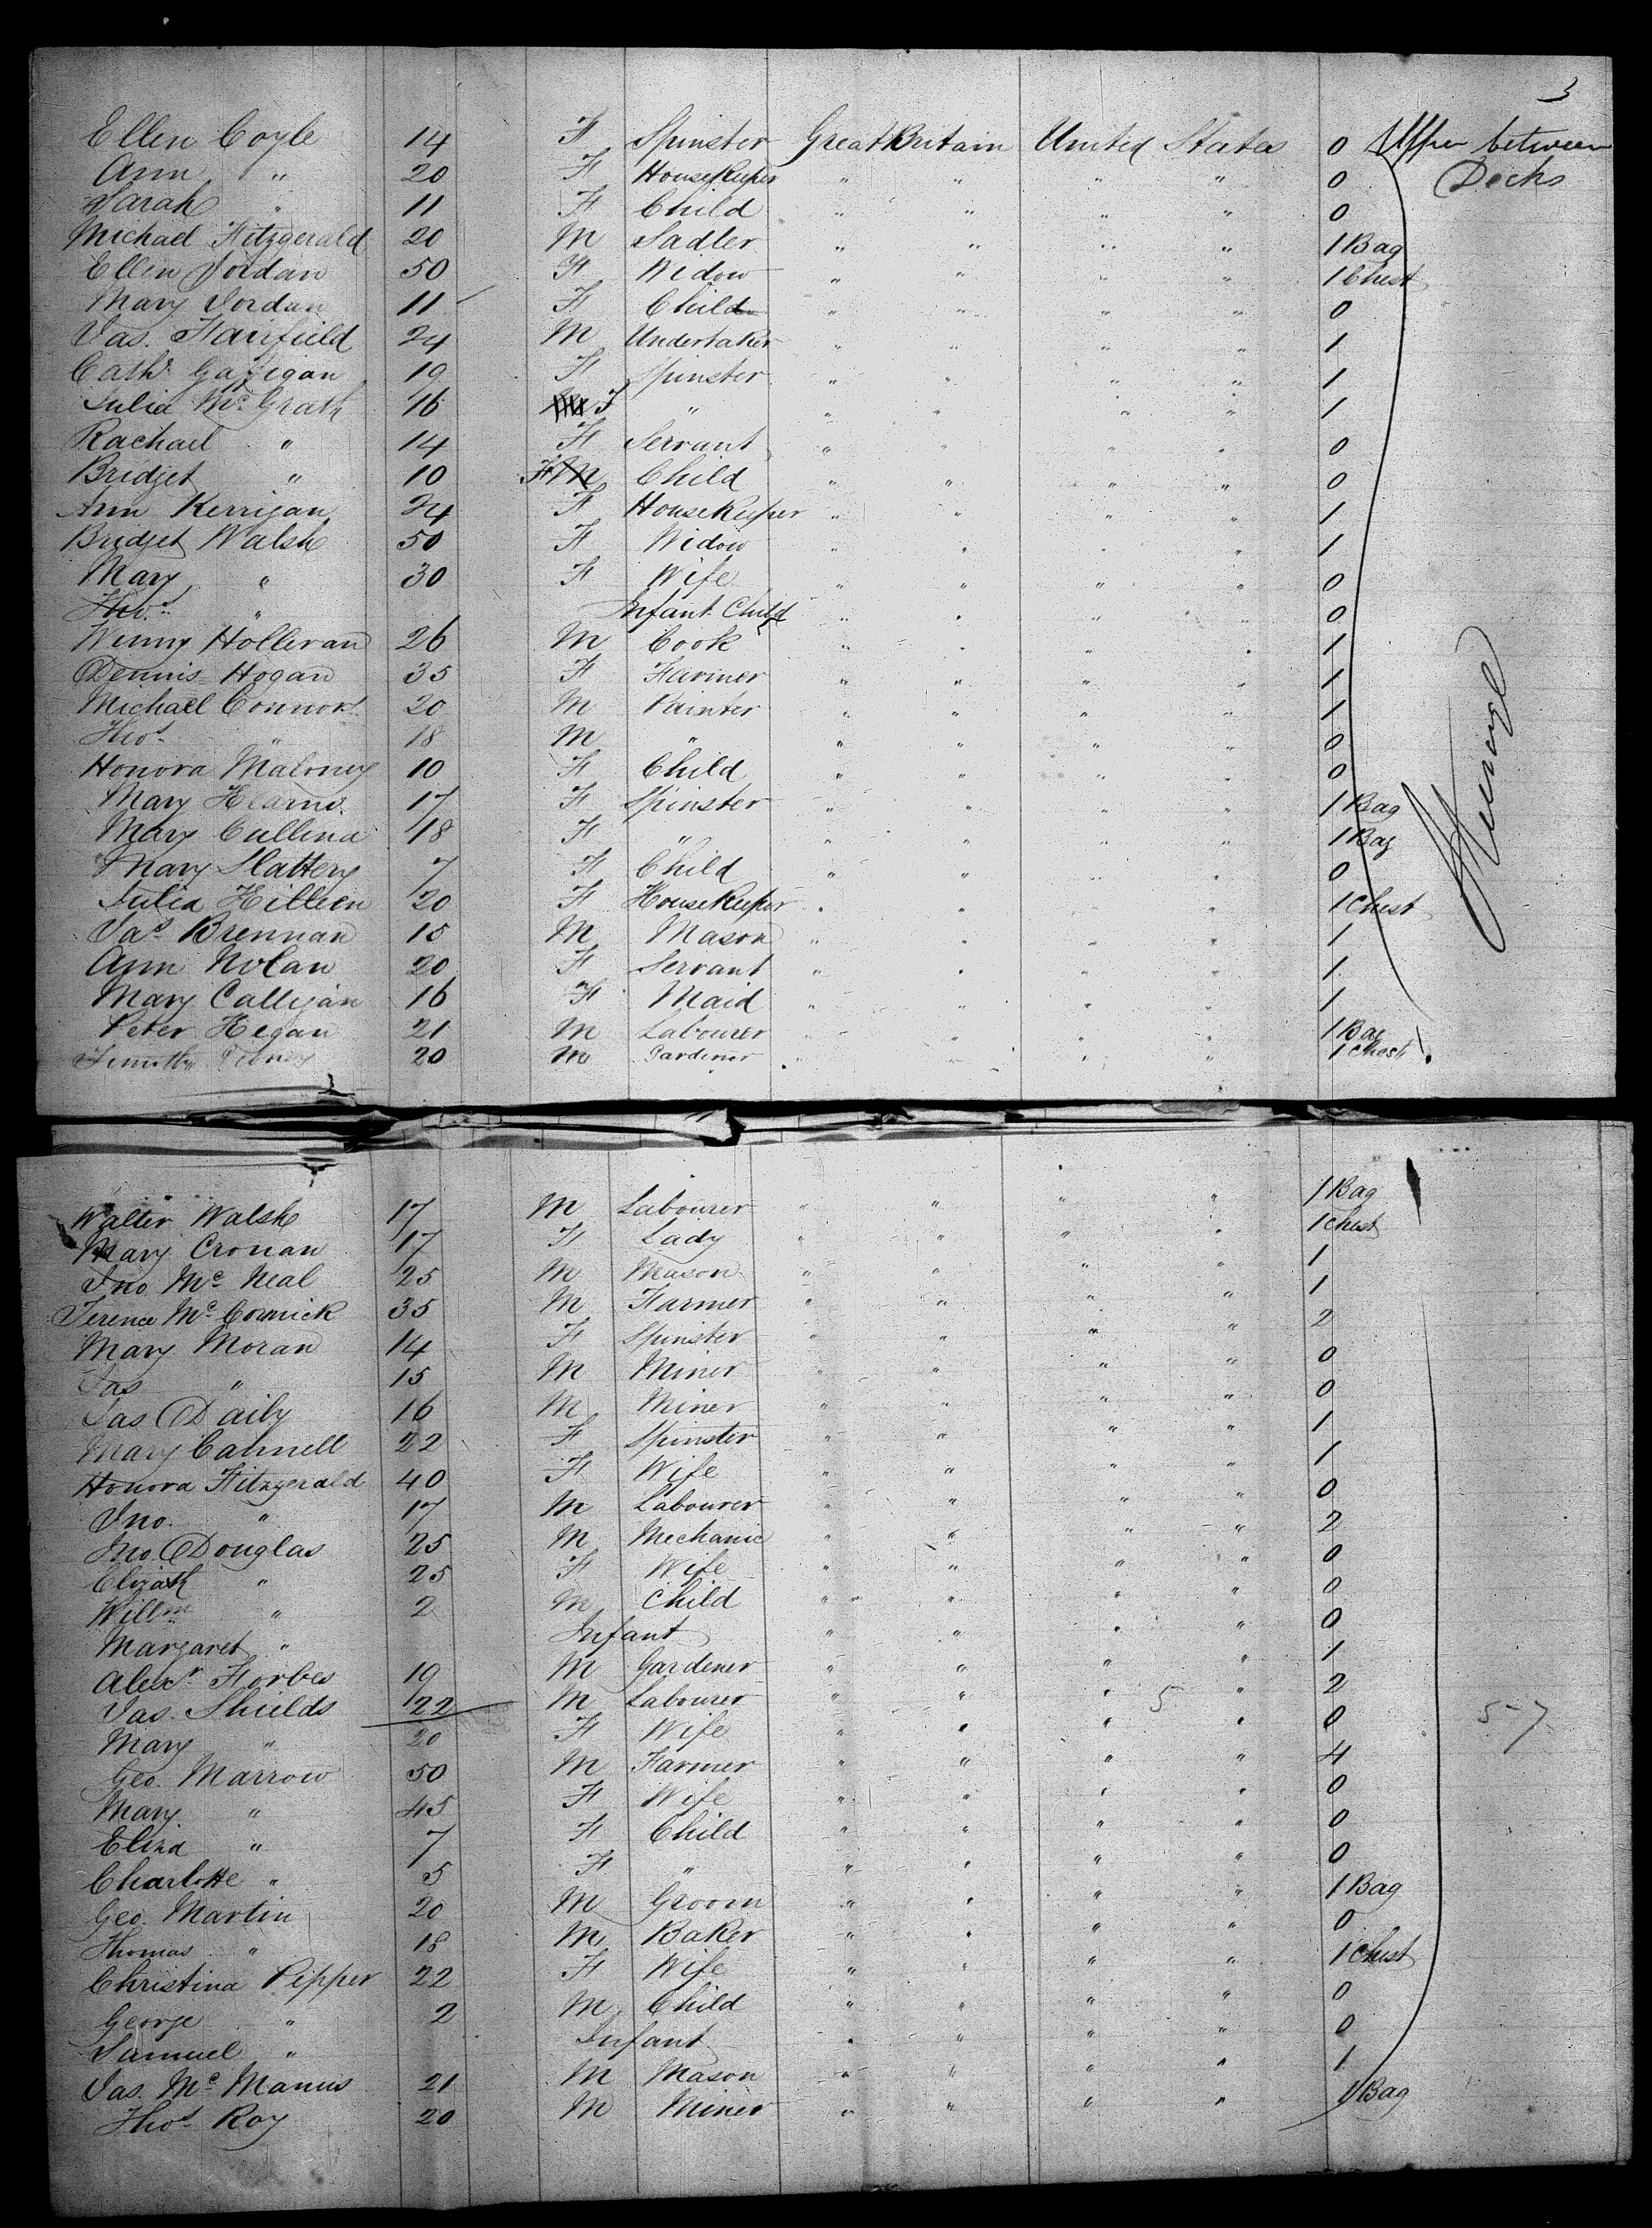 3
Ellen Coyle 14 F Spinster Great Britain United States 0 Upper between
Ann " 20 F Housekeeper " " " " 0 Decks
Sarah " 11 F Child " " " " 0
Michael Fitzgerald 20 M Sadler " " " " 1 Bag
Ellen Jordan 50 F Widow " " " " 1 Chest
Mary Jordan 11 F Child " " " " 0
Jas. Fairfield 24 M Undertaker " " " " 1
Cathe Gaffigan 19 F Spinster " " " " 1
Julia Mc Grath 16 F " " " " " 1
Rachael " 14 F Servant " " " " 0
Bridget " 10 F M Child " " " " 0
Ann Kerrigan 24 F Housekeeper " " " " 1
Bridget Walsh 50 F Widow " " " " 1
Mary " 30 F Wife " " " " 0
Thos " Infant Child " " " " 0
Winny Holleran 26 M Cook " " " " 1
Dennis Hogan 35 F Farmer " " " " 1
Michael Connors 20 M Painter " " " " 1
Thos " 18 M " " " " " 0
Honora Maloney 10 F Child " " " " 0
Mary 17 F Spinster " " " " 1 Bag
Mary Cullina 18 F " " " " " 1 Bag
Mary Slattery 7 F Child " " " " 0
Julia Killeen 20 F Housekeeper " " " " 1 Chest
Jas Brennan 15 M Mason " " " " 1
Ann Nolan 20 F Servant " " " " 1
Mary Calligan 16 F Maid " " " " 1
Peter Hegan 21 M Labourer " " " " 1 Bag
Timothy 20 M Gardener " " " " 1 Chest
Steerage
Walter Walsh 17 M Labourer " " " " 1 Bag
Mary Cronan 17 F Lady " " " " 1 Chest
Jno. Mc Neal 25 M Mason " " " " 1
Terence Mc Cormick 35 M Farmer " " " " 1
Mary Moran 14 F Spinster " " " " 2
Jas " 15 M Miner " " " " 0
Jas Daily 16 M Miner " " " " 0
Mary Cahnell 22 F Spinster " " " " 1
Honora Fitzgerald 40 F Wife " " " " 1
Jno. " 17 M Labourer " " " " 0
Jno. Douglas 25 M Mechanic " " " " 2
Elizath " 25 F Wife " " " " 0
Willm " 2 M Child " " " " 0
Margaret " Infant " " " " 0
Alexr Forbes 19 M Gardener " " " " 1
Jas. Shields 22 M Labourer " " " 5 " 2
Mary " 20 F Wife " " " " 0 57
Geo. Marrow 50 M Farmer " " " " 4
Mary " 45 F Wife " " " " 0
Eliza " 7 F Child " " " " 0
Charlotte " 5 F " " " " " 0
Geo. Martin 20 M Groom " " " " 1 Bag
Thomas " 18 M Baker " " " " 0
Christina Pepper 22 F Wife " " " " 1 Chest
George " 2 M Child " " " " 0
Samuel " Infant " " " " 0
Jas. Mc Manus 21 M Mason " " " " 1
Thos Roy 20 M Miner " " " " 1 Bag